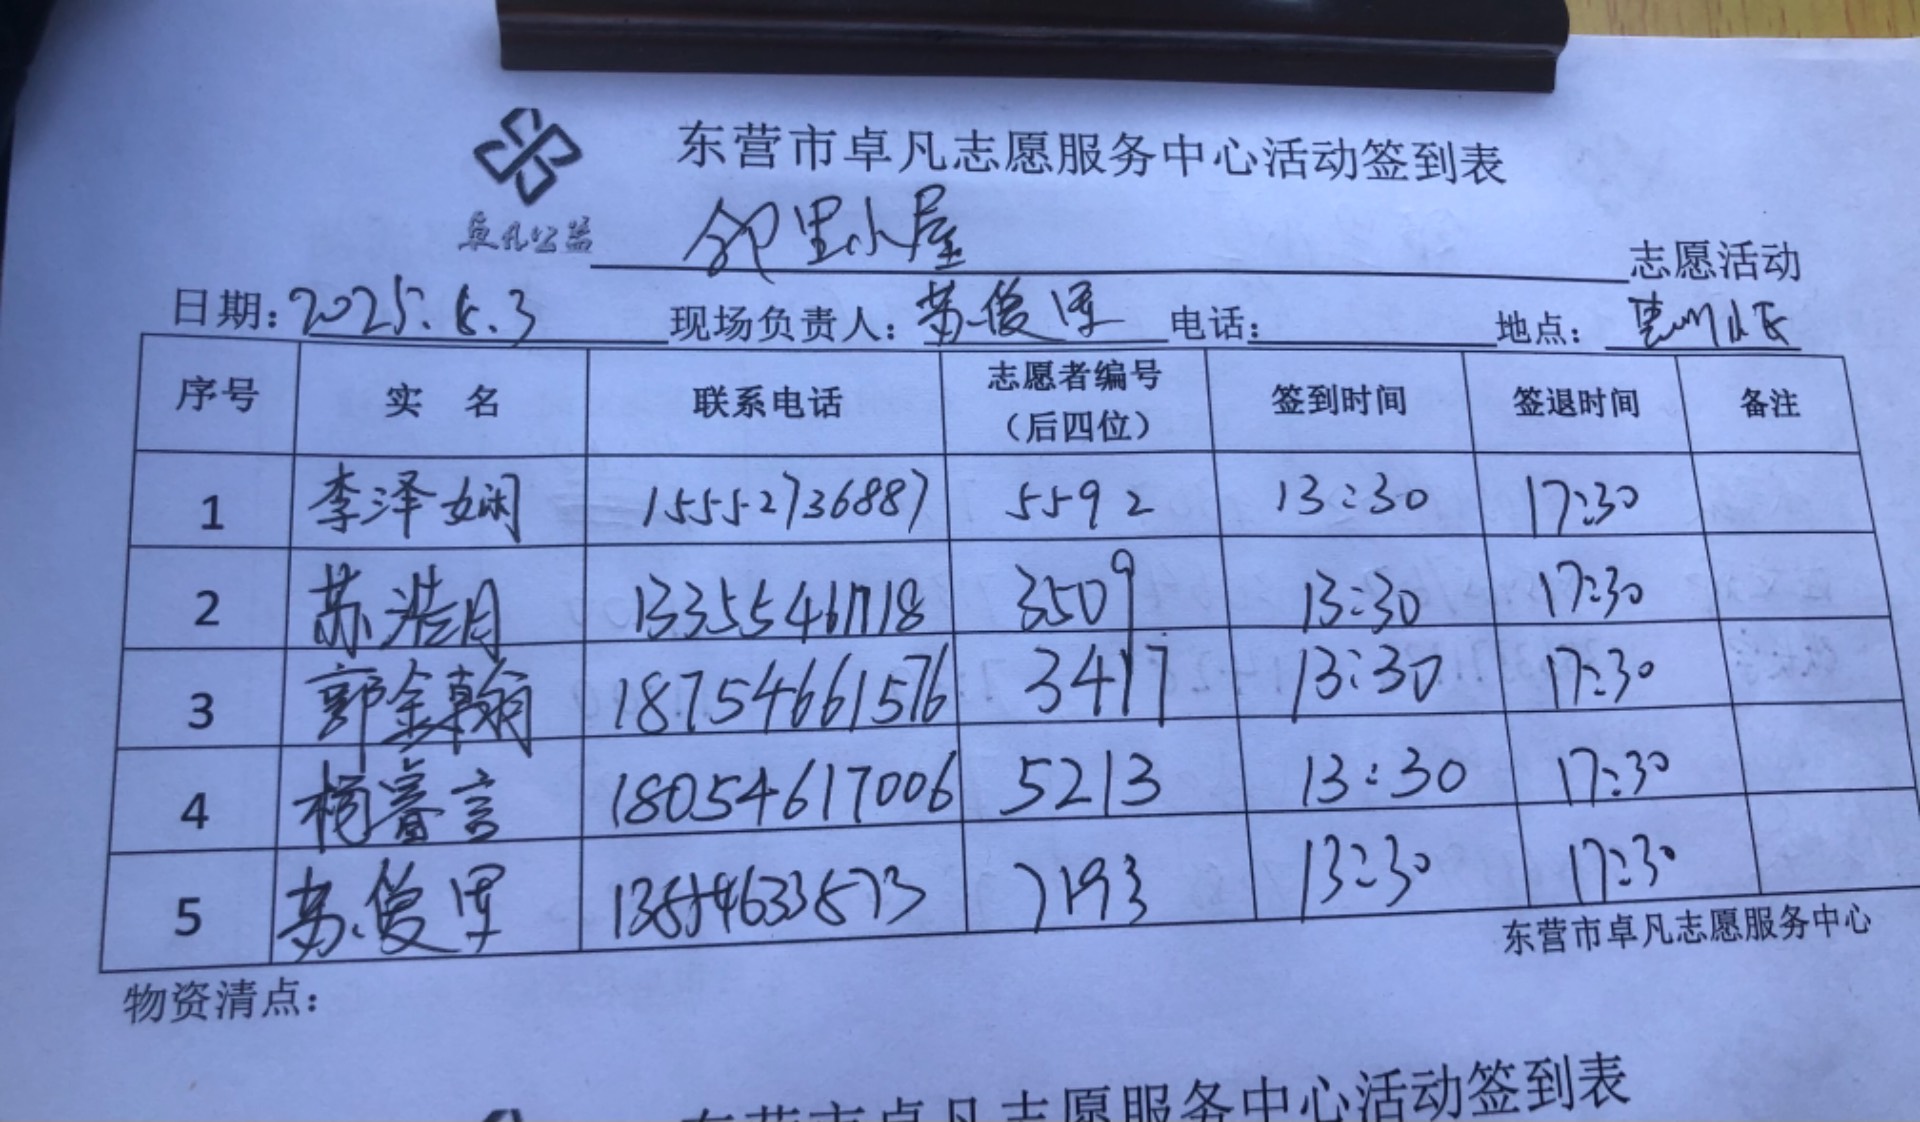 东营市卓凡志愿服务中心活动签到表
卓凡公益
邻里小屋 志愿活动
日期：2025.5.3 现场负责人：苏俊军 电话： 地点：
序号 实名 联系电话 志愿者编号（后四位） 签到时间 签退时间 备注
1 李泽娴 15552736887 5592 13:30 17:30
2 苏浩月 13355461718 3509 13:30 17:30
3 郭金翰 18754661576 3417 13:30 17:30
4 杨睿言 18054617006 5213 13:30 17:30
5 苏俊军 7193 13:30 17:30
东营市卓凡志愿服务中心
物资清点：
东营市卓凡志愿服务中心活动签到表